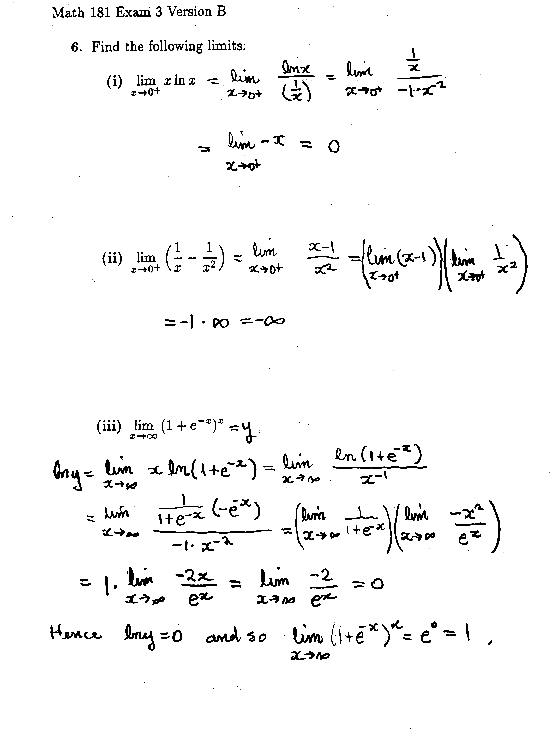 Math 181 Exam 3 Version B
6. Find the following limits:
(i) lim_{x→0+} x ln x = lim_{x→0+} ln x / (1/x) = lim_{x→0+} (1/x) / (-1·x^{-2})
= lim_{x→0+} -x = 0
(ii) lim_{x→0+} (1/x - 1/x^2) = lim_{x→0+} (x-1)/x^2 = (lim_{x→0+} (x-1)) (lim_{x→0+} 1/x^2)
= -1 · ∞ = -∞
(iii) lim_{x→∞} (1 + e^{-x})^x = y.
ln y = lim_{x→∞} x ln(1+e^{-x}) = lim_{x→∞} ln(1+e^{-x}) / x^{-1}
= lim_{x→∞} (1/(1+e^{-x}) (-e^{-x})) / (-1·x^{-2}) = (lim_{x→∞} 1/(1+e^{-x})) (lim_{x→∞} -x^2/e^x)
= 1 · lim_{x→∞} -2x/e^x = lim_{x→∞} -2/e^x = 0
Hence ln y = 0 and so lim_{x→∞} (1+e^{-x})^x = e^0 = 1.